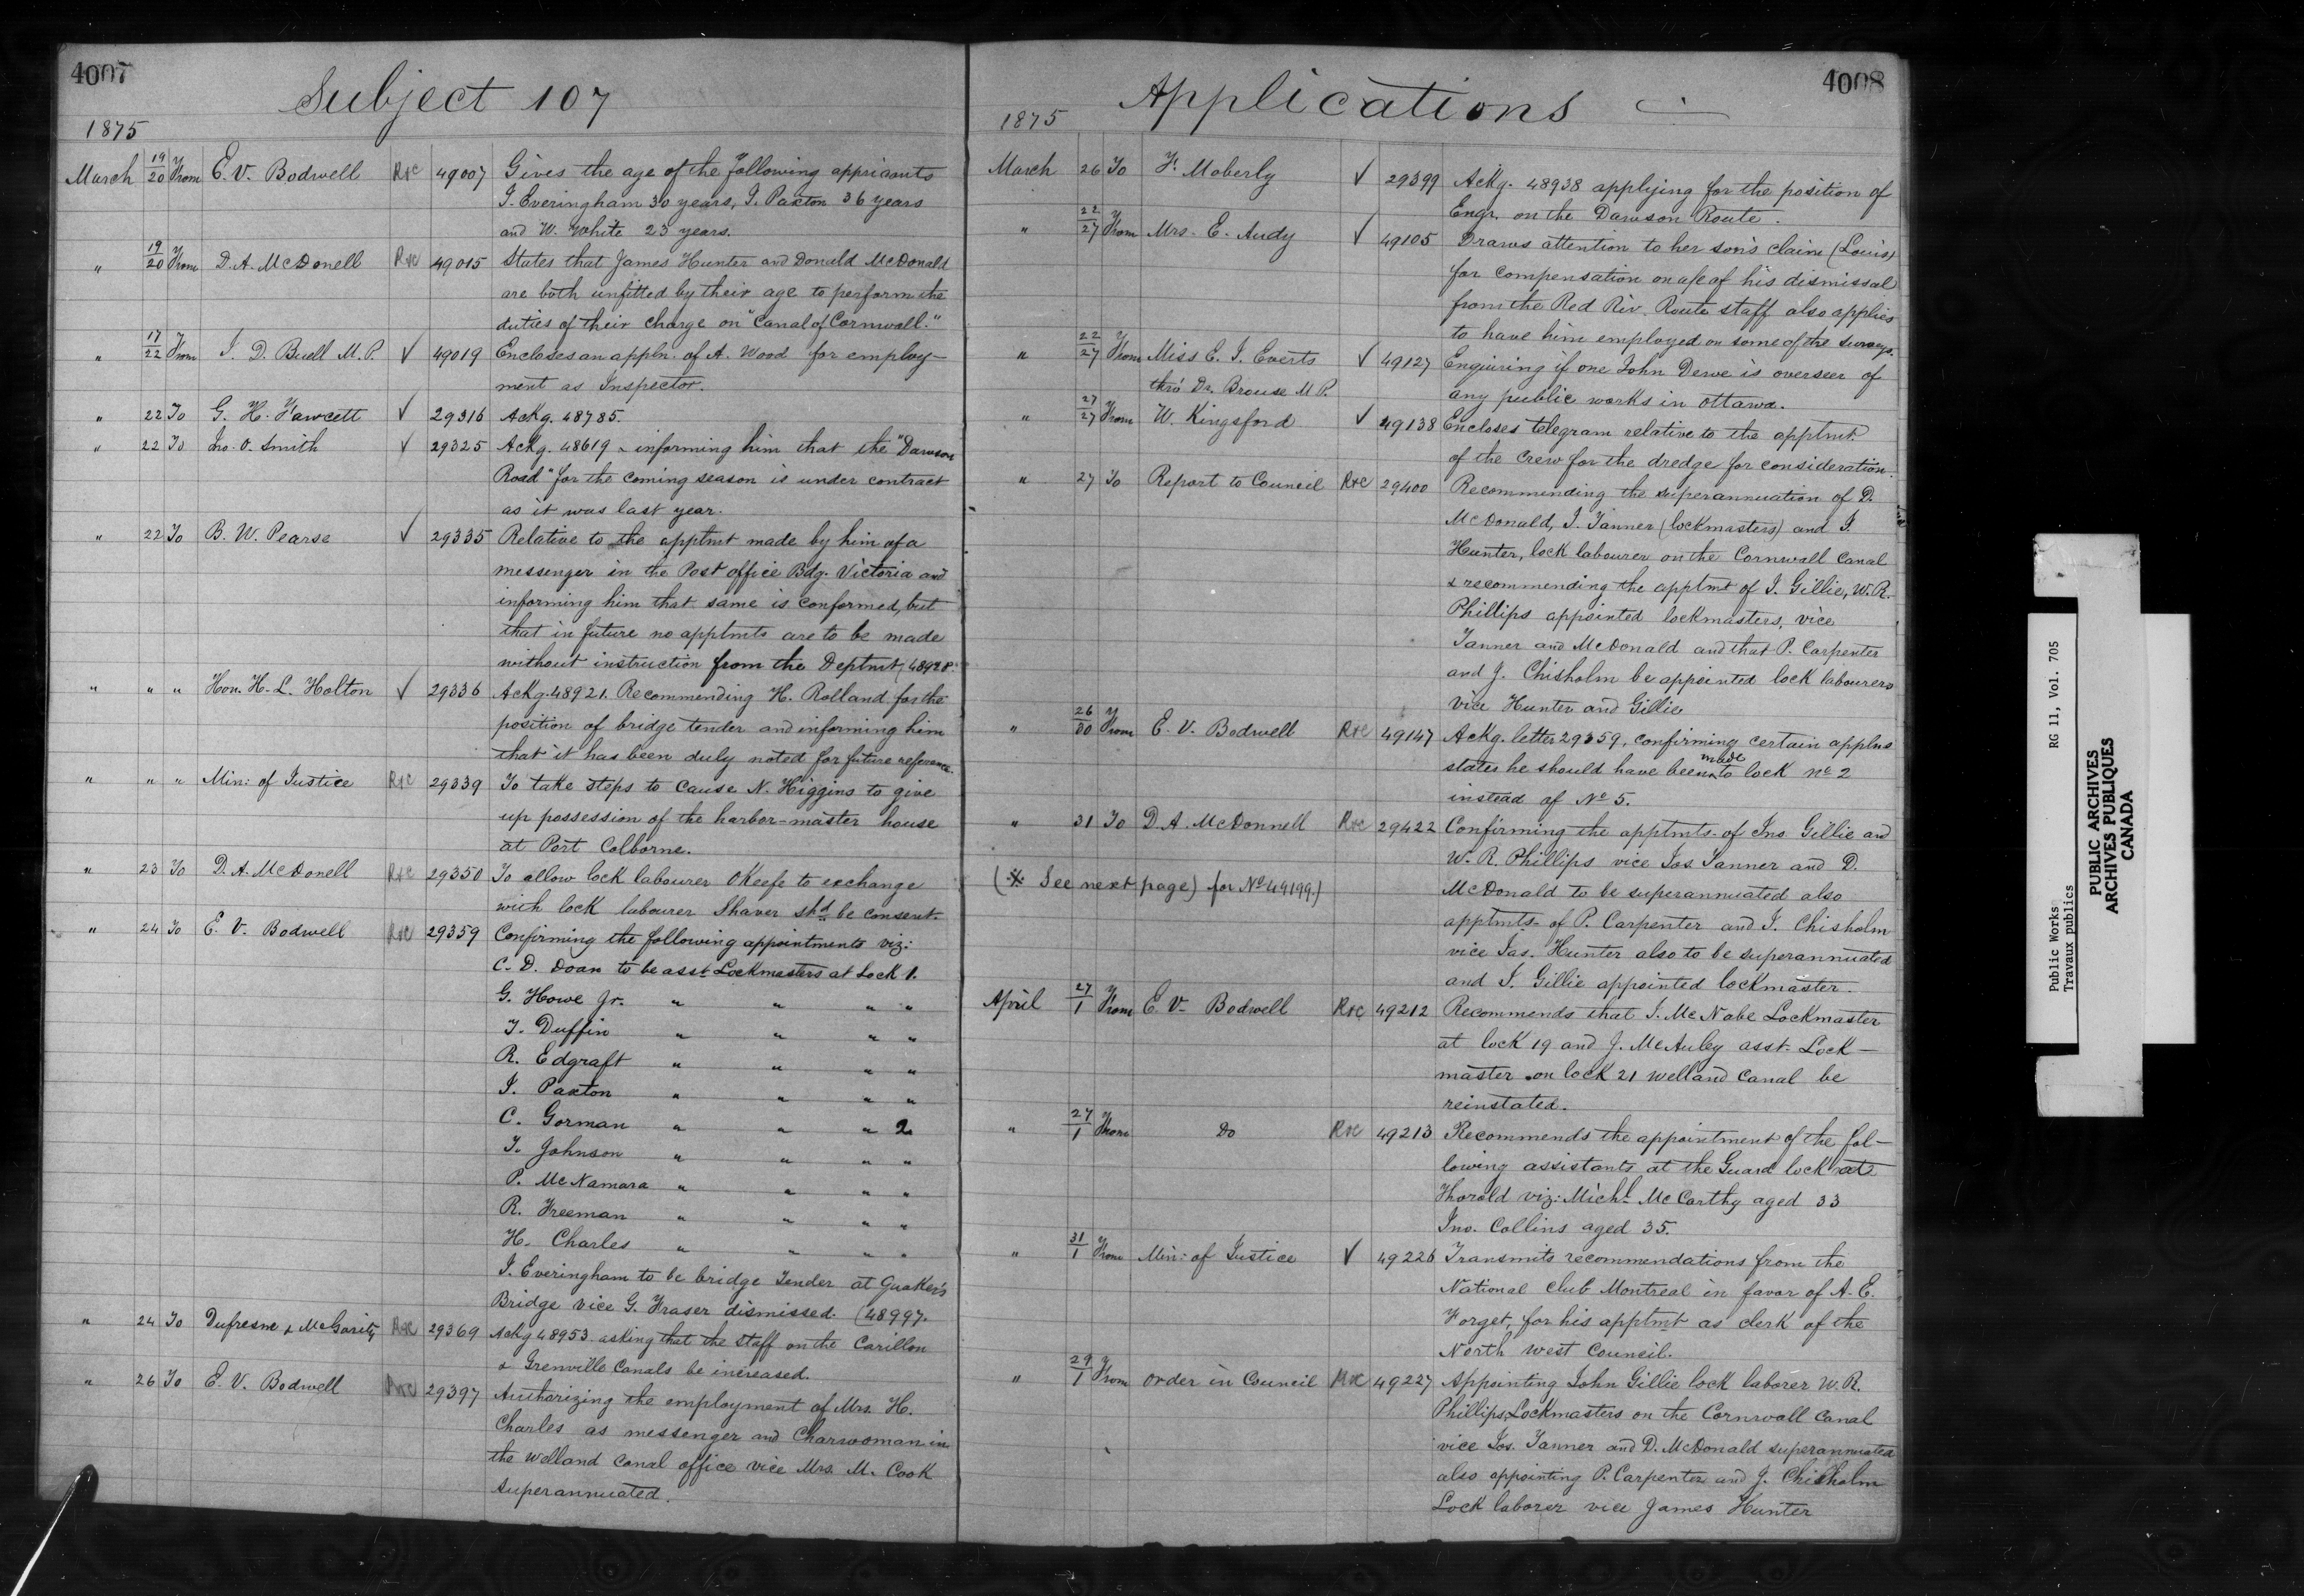 4007
Subject 107
1875
March 19/20 From E. V. Bodwell R&C 49007 Gives the age of the following appricants
I. Everingham 30 years, I. Paxton 36 years
and W. White 23 years.
" 19/20 From D. A. McDonell R&C 49015 States that James Hunter and Donald McDonald
are both unfitted by their age to perform the
duties of their charge on "Canal of Cornwall."
" 17/22 From I. D. Buell M.P. ✓ 49019 Encloses an appln. of A. Wood for employ-
ment as Inspector.
" 22 To G. H. Fawcett ✓ 29316 Ackg. 48785.
" 22 To Jno. O. Smith ✓ 29325 Ackg. 48619 & informing him that the "Dawson
Road" for the coming season is under contract
as it was last year.
" 22 To B. W. Pearse ✓ 29335 Relative to the apptmt made by him of a
messenger in the Post office Bdg. Victoria and
informing him that same is conformed, but
that in future no apptmts are to be made
without instruction from the Deptmt (48928.
" " " Hon. H. L. Holton ✓ 29336 Ackg. 48921. Recommending H. Rolland for the
position of bridge tender and informing him
that it has been duly noted for future reference.
" " " Min: of Justice R&C 29339 To take steps to cause N. Higgins to give
up possession of the harbor-master house
at Port Colborne.
" 23 To D. A. McDonell R&C 29350 To allow lock labourer OKeefe to exchange
with lock labourer Shaver shd be consent
" 24 To E. V. Bodwell R&C 29359 Confirming the following appointments viz:
C. D. Doan to be asst Lockmasters at Lock 1.
G. Howe Jr. " " " "
T. Duffin " " " "
R. Edgraft " " " "
I. Paxton " " " "
C. Gorman " " " 2
T. Johnson " " " "
P. McNamara " " " "
R. Freeman " " " "
H. Charles " " " "
I. Everingham to be bridge Tender at Quaker's
Bridge vice G. Fraser dismissed. (48997.
" 24 To Dufresne & McGarity R&C 29369 Ackg 48953 asking that the staff on the Carillon
& Grenville Canals be increased.
" 26 To E. V. Bodwell R&C 29397 Authorizing the employment of Mrs. H.
Charles as messenger and Charwoman in
the Welland Canal office vice Mrs. M. Cook
superannuated.
4008
Applications
1875
March 26 To F. Moberly ✓ 29399 Ackg. 48938 applying for the position of
Engr. on the Dawson Route.
" 22/27 From Mrs. E. Audy ✓ 49105 Draws attention to her son's claim (Louis)
for compensation on a/c of his dismissal
from the Red Riv. Route staff also applies
to have him employed on some of the surveys.
" 22/27 From Miss E. I. Everts ✓ 49127 Enquiring if one John Dewe is overseer of
thro' Dr. Brouse M.P. any public works in Ottawa.
" 27/27 From W. Kingsford ✓ 49138 Encloses telegram relative to the apptmt.
of the crew for the dredge for consideration.
" 27 To Report to Council R&C 29400 Recommending the superannuation of D.
McDonald, I. Tanner (lockmasters) and I.
Hunter, lock labourer on the Cornwall Canal
& recommending the apptmt of I. Gillie, W. R.
Phillips appointed lockmasters, vice
Tanner and McDonald and that P. Carpenter
and J. Chisholm be appointed lock labourers
vice Hunter and Gillie
" 26/30 From E. V. Bodwell R&C 49147 Ackg. letter 29359, confirming certain applns
states he should have been made to lock No 2
instead of No 5.
" 31 To D. A. McDonnell R&C 29422 Confirming the apptmts. of Jno Gillie and
W. R. Phillips vice Jos Tanner and D.
(※ See next page) for No 49199.) McDonald to be superannuated also
apptmts of P. Carpenter and I. Chisholm
vice Jas. Hunter also to be superannuated
and I. Gillie appointed lockmaster.
April 27/1 From E. V. Bodwell R&C 49212 Recommends that I. McNabe Lockmaster
at lock 19 and J. McAuley asst. Lock-
master on lock 21 Welland Canal be
reinstated.
" 27/1 From Do R&C 49213 Recommends the appointment of the fol-
lowing assistants at the Guard lock at
Thorold viz: Michl McCarthy aged 33
Jno. Collins aged 35.
" 31/1 From Min: of Justice ✓ 49226 Transmits recommendations from the
National Club Montreal in favor of A. E.
Forget, for his apptmt as clerk of the
North West Council.
" 29/1 From Order in Council R&C 49227 Appointing John Gillie lock laborer W. R.
Phillips, Lockmasters on the Cornwall Canal
vice Jos. Tanner and D. McDonald superannuated
also appointing P. Carpenter and J. Chisholm
Lock laborer vice James Hunter
Public Works RG 11, Vol. 705
Travaux publics
PUBLIC ARCHIVES
ARCHIVES PUBLIQUES
CANADA